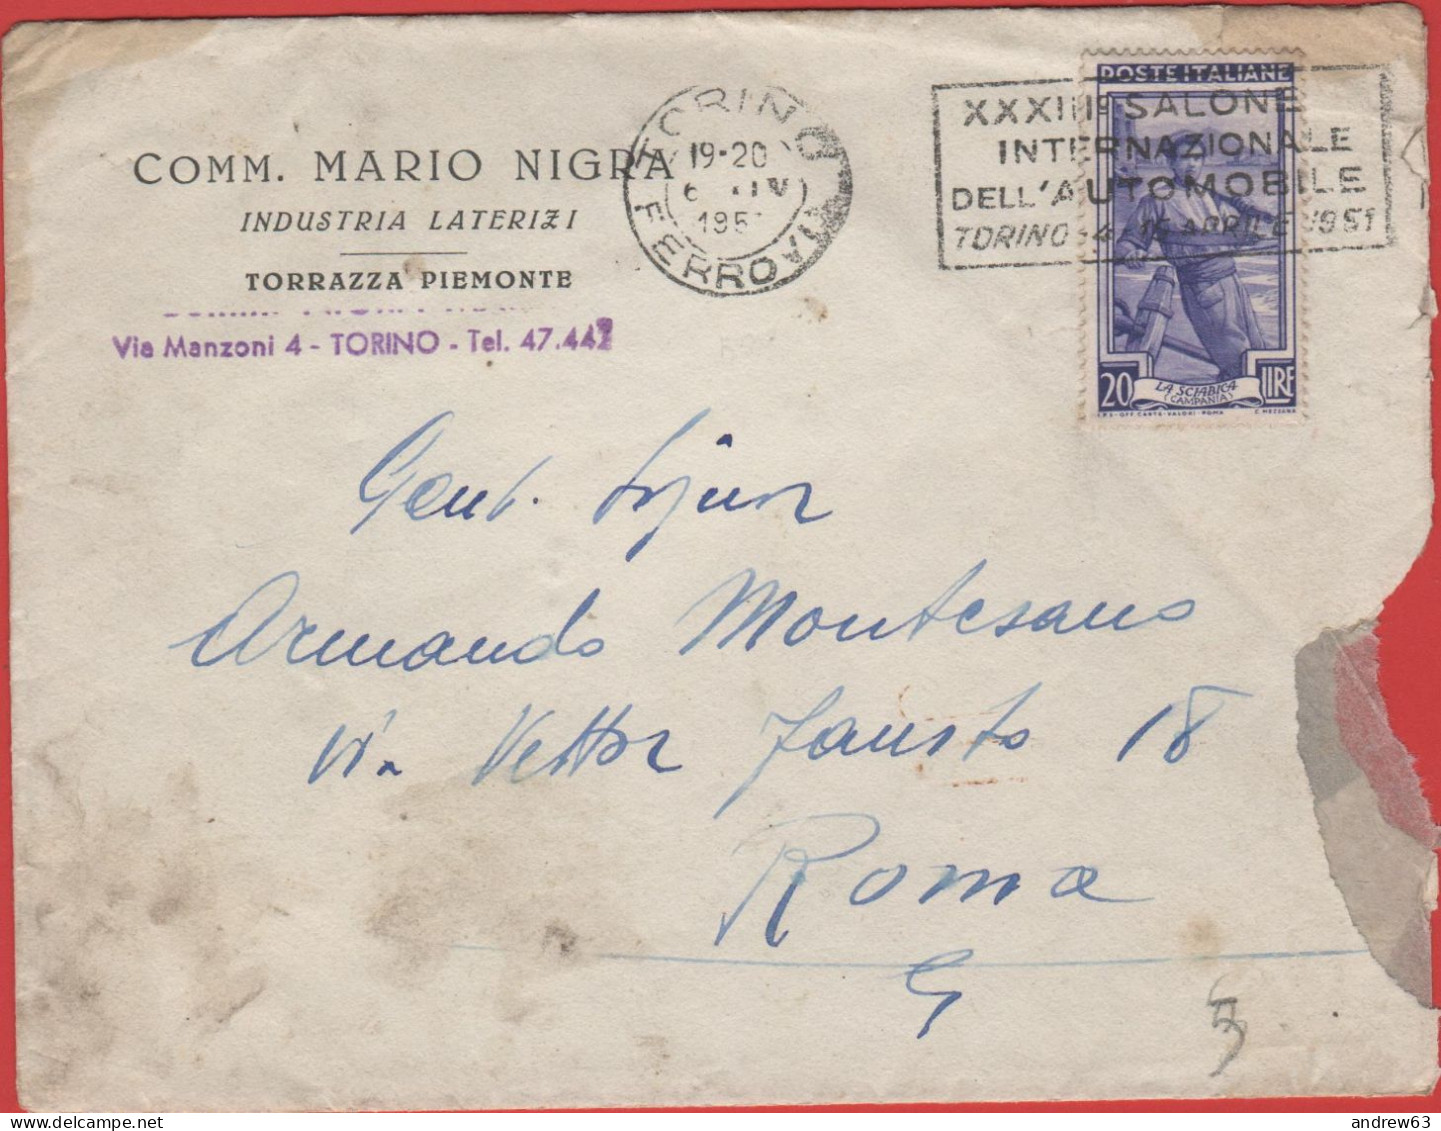 COMM. MARIO NIGRA
INDUSTRIA LATERIZI
TORRAZZA PIEMONTE
Via Manzoni 4 - TORINO - Tel. 47.442
TORINO
19-20
6 IV
195
FERROVIA
XXXIIIº SALONE
INTERNAZIONALE
DELL'AUTOMOBILE
TORINO - 4 - 15 APRILE 1951
POSTE ITALIANE
20 LIRE
LA SCIABICA
(CAMPANIA)
I.P.S. - OFF. CARTE - VALORI - ROMA C. MEZZANA
Gent. Signor
Armando Montesano
Via Vettor Fausto 18
Roma
andrew63